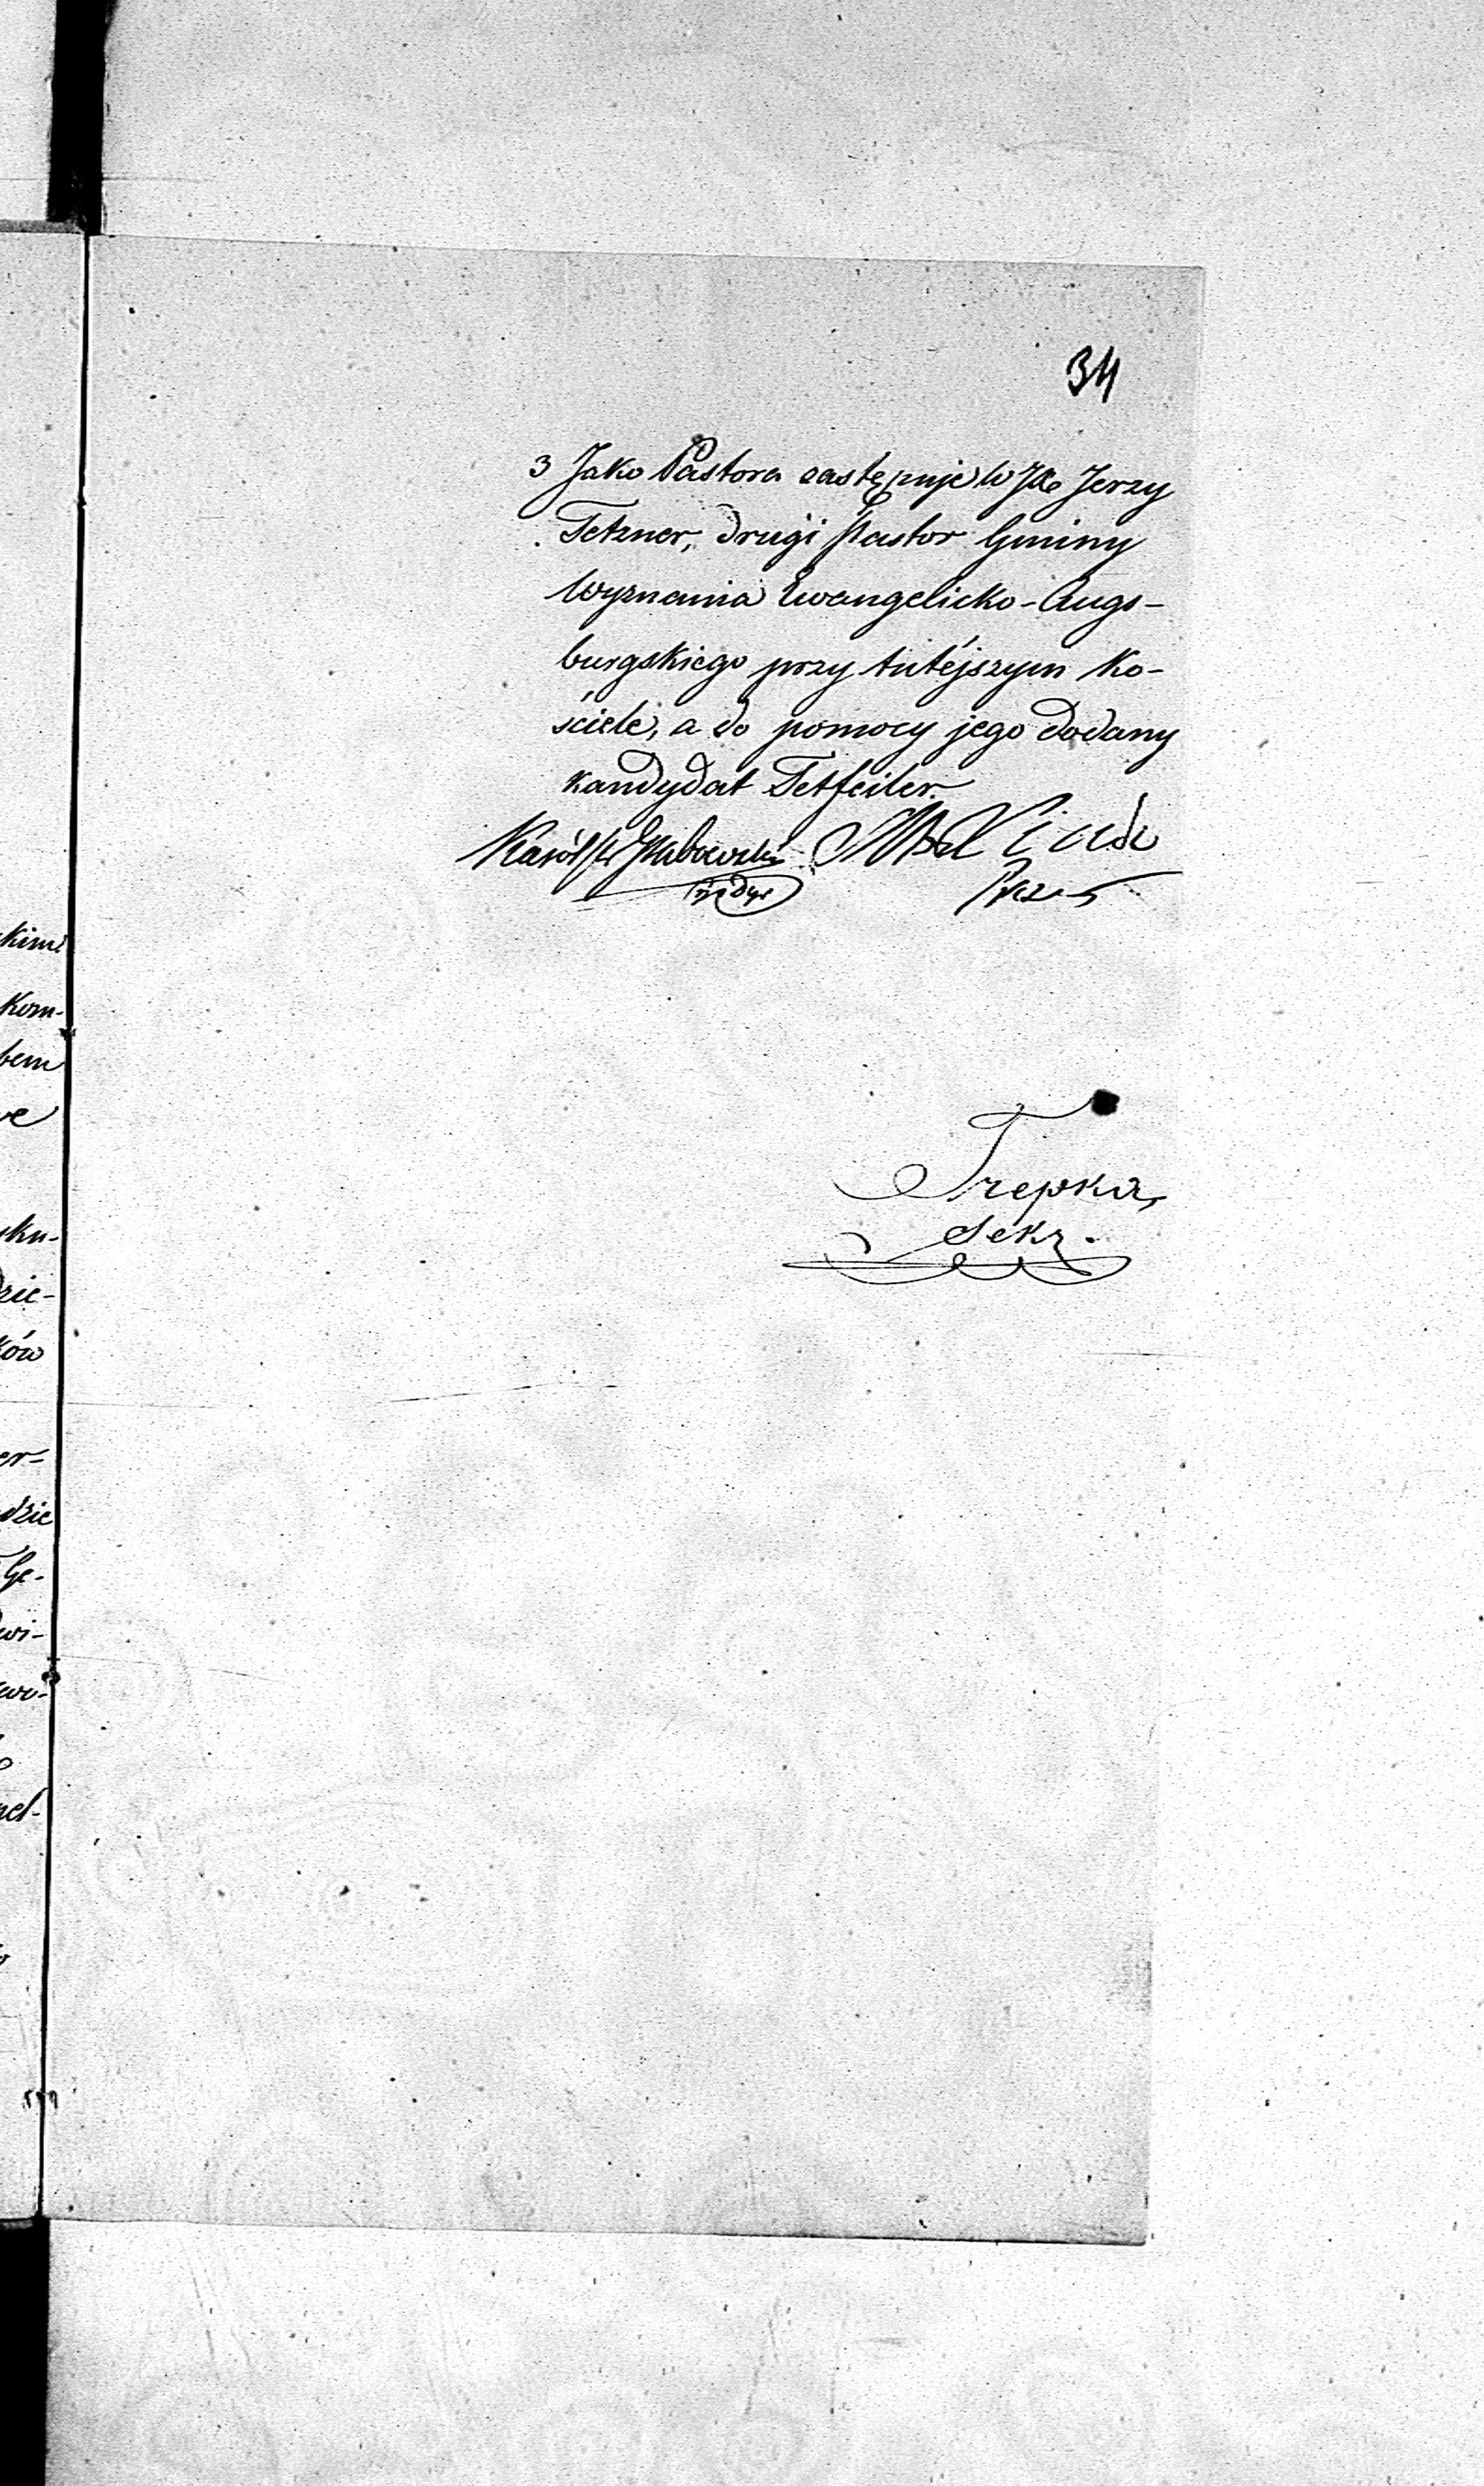 34
3 Jako Pastora zastępuje W JX Jerzy
Tetzner, drugi Pastor Gminy
Wyznania Ewangelicko-Augs-
burgskiego przy tutéjszym Ko-
ściele, a do pomocy jego dodany
kandydat Tetfeiler.
Karól
Prezes
Trepka,
Sekr.
kim
Kom-
bem
ve
sku-
dzie-
ków
er-
dzie
Ge-
wi-